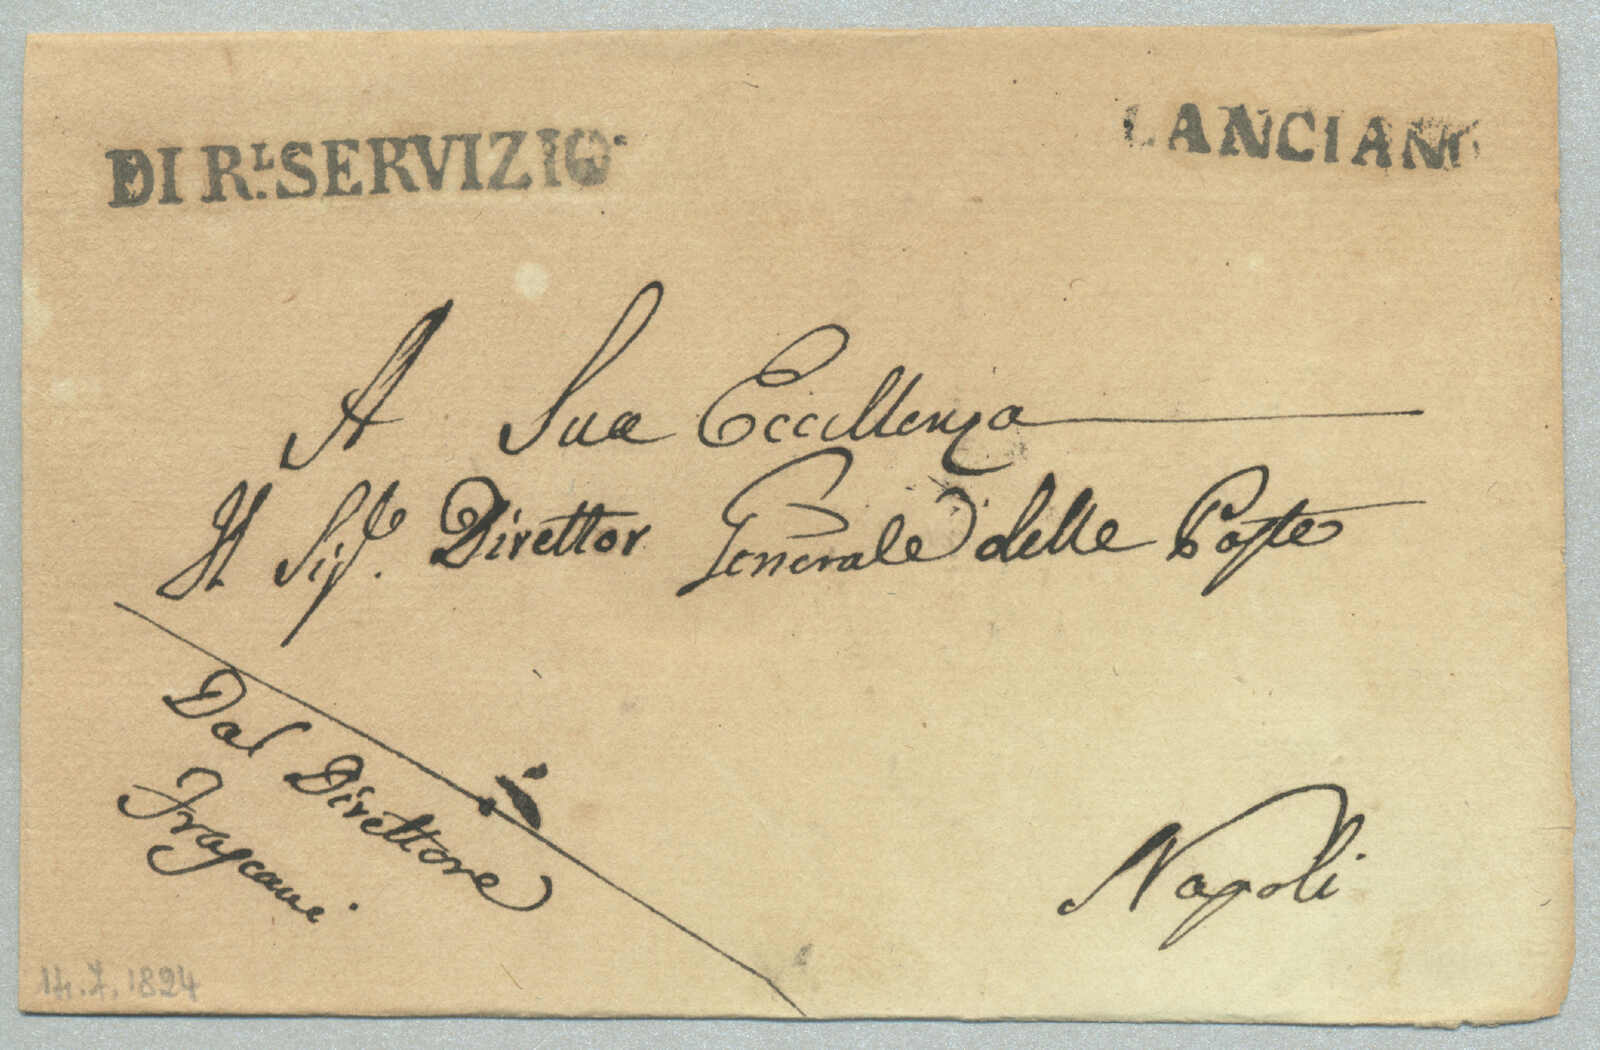 DI R.L SERVIZIO
LANCIANO
A Sua Eccellenza
Il Sig.r Direttor Generale delle Poste
Dal Direttore
Napoli
14.7.1824